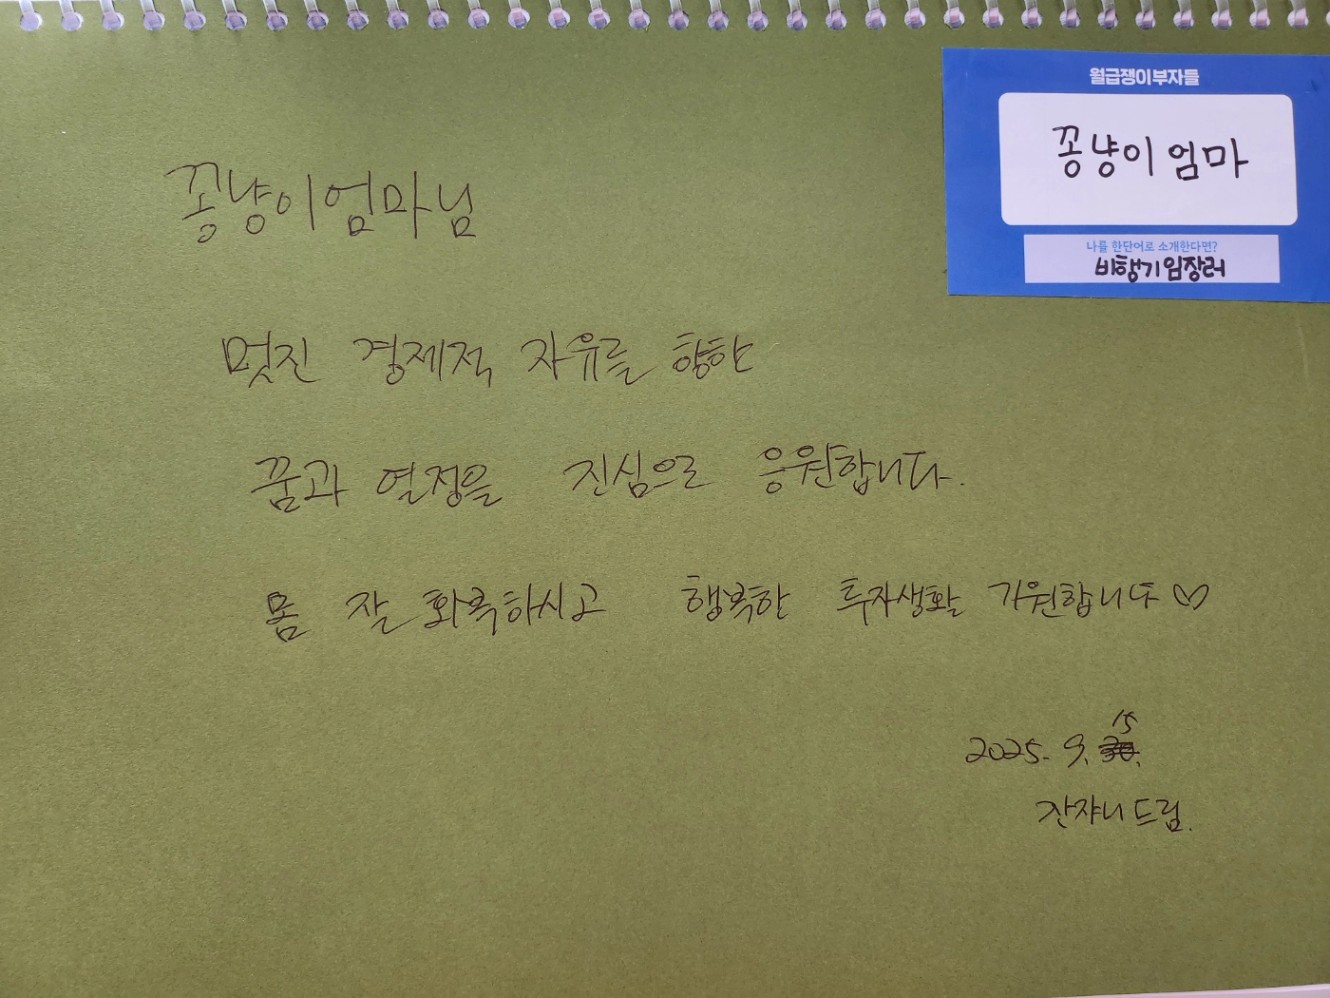 월급쟁이부자들
꽁냥이 엄마
나를 한단어로 소개한다면?
비행기임장러
꽁냥이엄마님
멋진 경제적 자유를 향한
꿈과 열정을 진심으로 응원합니다.
몸 잘 회복하시고 행복한 투자생활 기원합니다♡
15
2025. 9. 30.
잔쟈니 드림.